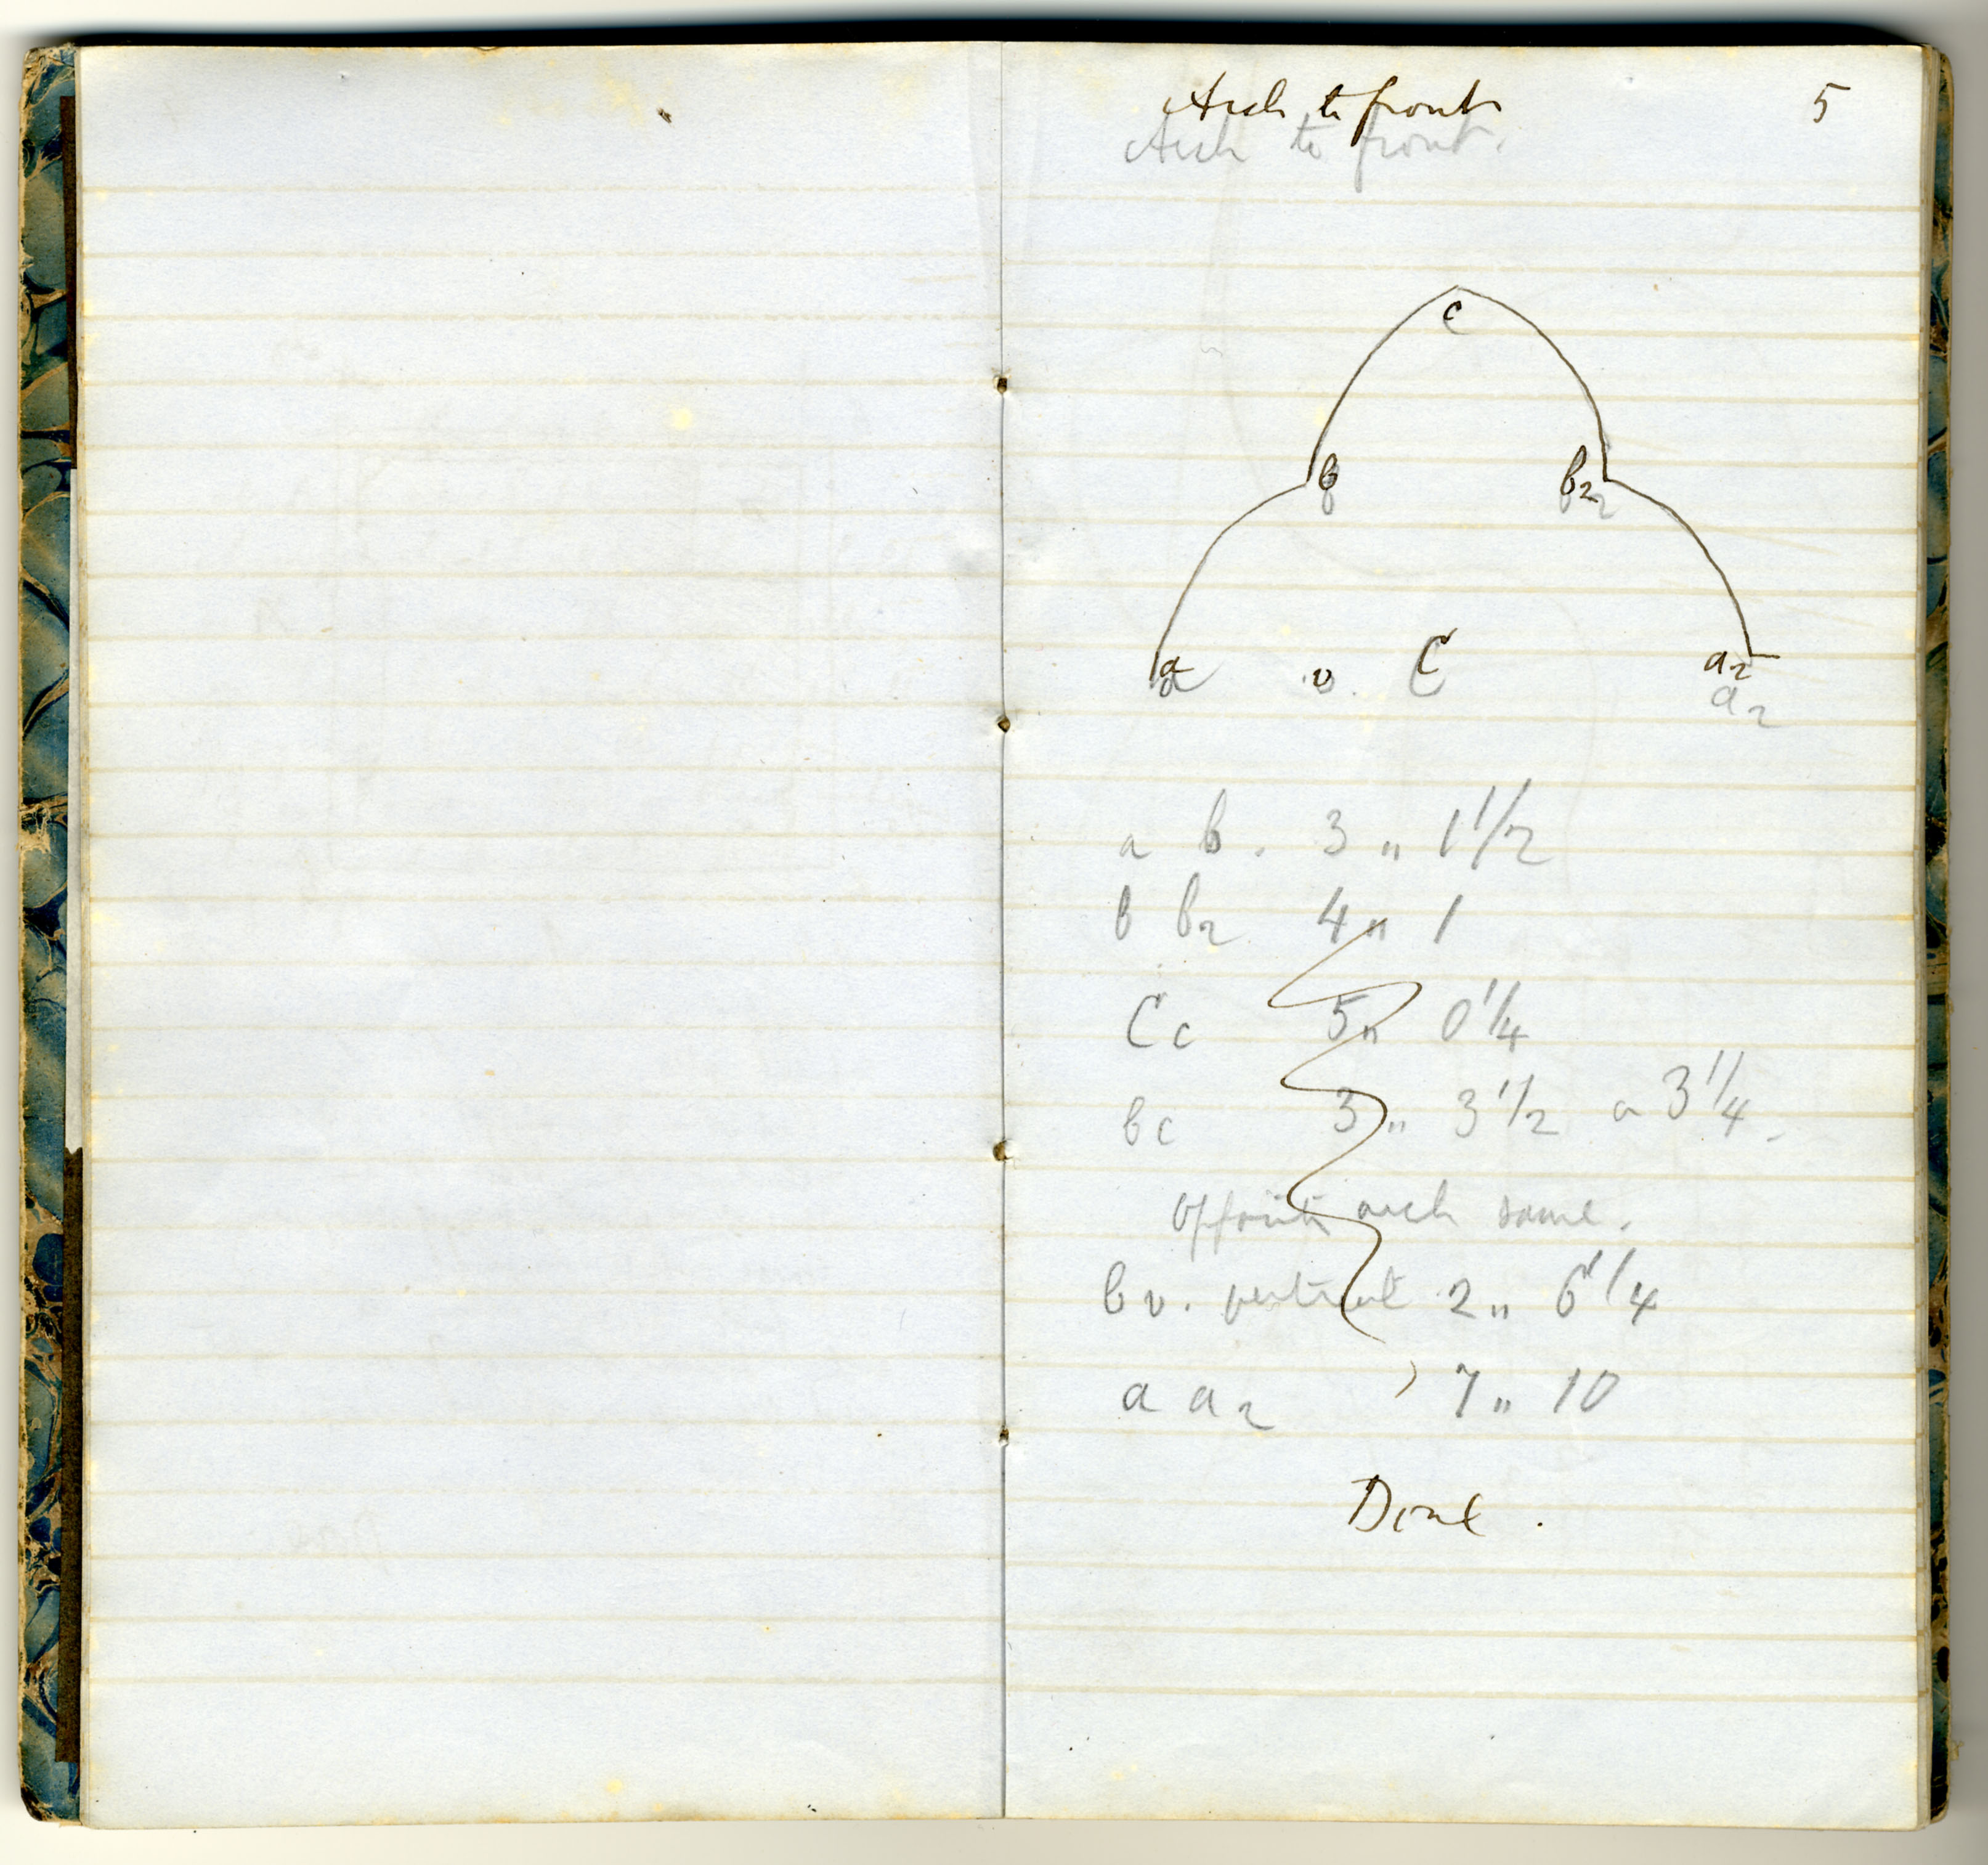 Arch to front 5
Arch to front.
c
b b2
b b2
a v C a2
a v. C a2
a b. 3 „ 1 1/2
b b2 4 „ 1
C c 5 „ 0 1/4
b c 3 „ 3 1/2 a 3 1/4.
opposite arch same.
b v. vertical 2 „ 6 1/4
a a2 7 „ 10
Done.